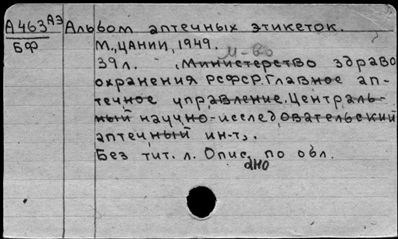 А463 АЭ Альбом аптечных этикеток.
БФ М., ЦАНИИ, 1949.
м-во
39л. Министерство здраво
охранения РСФСР. Главное ап-
течное управление. Централь-
ный научно-исследовательский
аптечный ин-т,.
Без тит. л. Опис. по обл.
дно